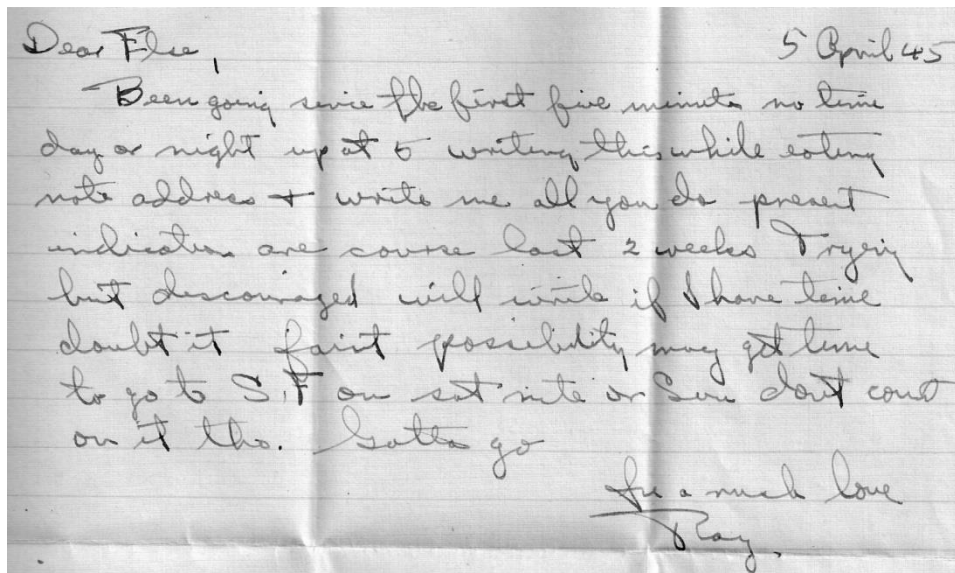 Dear Elsie, 5 April 45
Been going since the first five minutes no time
day or night up at 5 writing this while eating
note address + write me all you do present
indication are course last 2 weeks Trying
but discouraged will write if I have time
doubt it faint possibility may get time
to go to S.F on sat nite or Sun dont count
on it tho. Gotta go
much love
Ray.